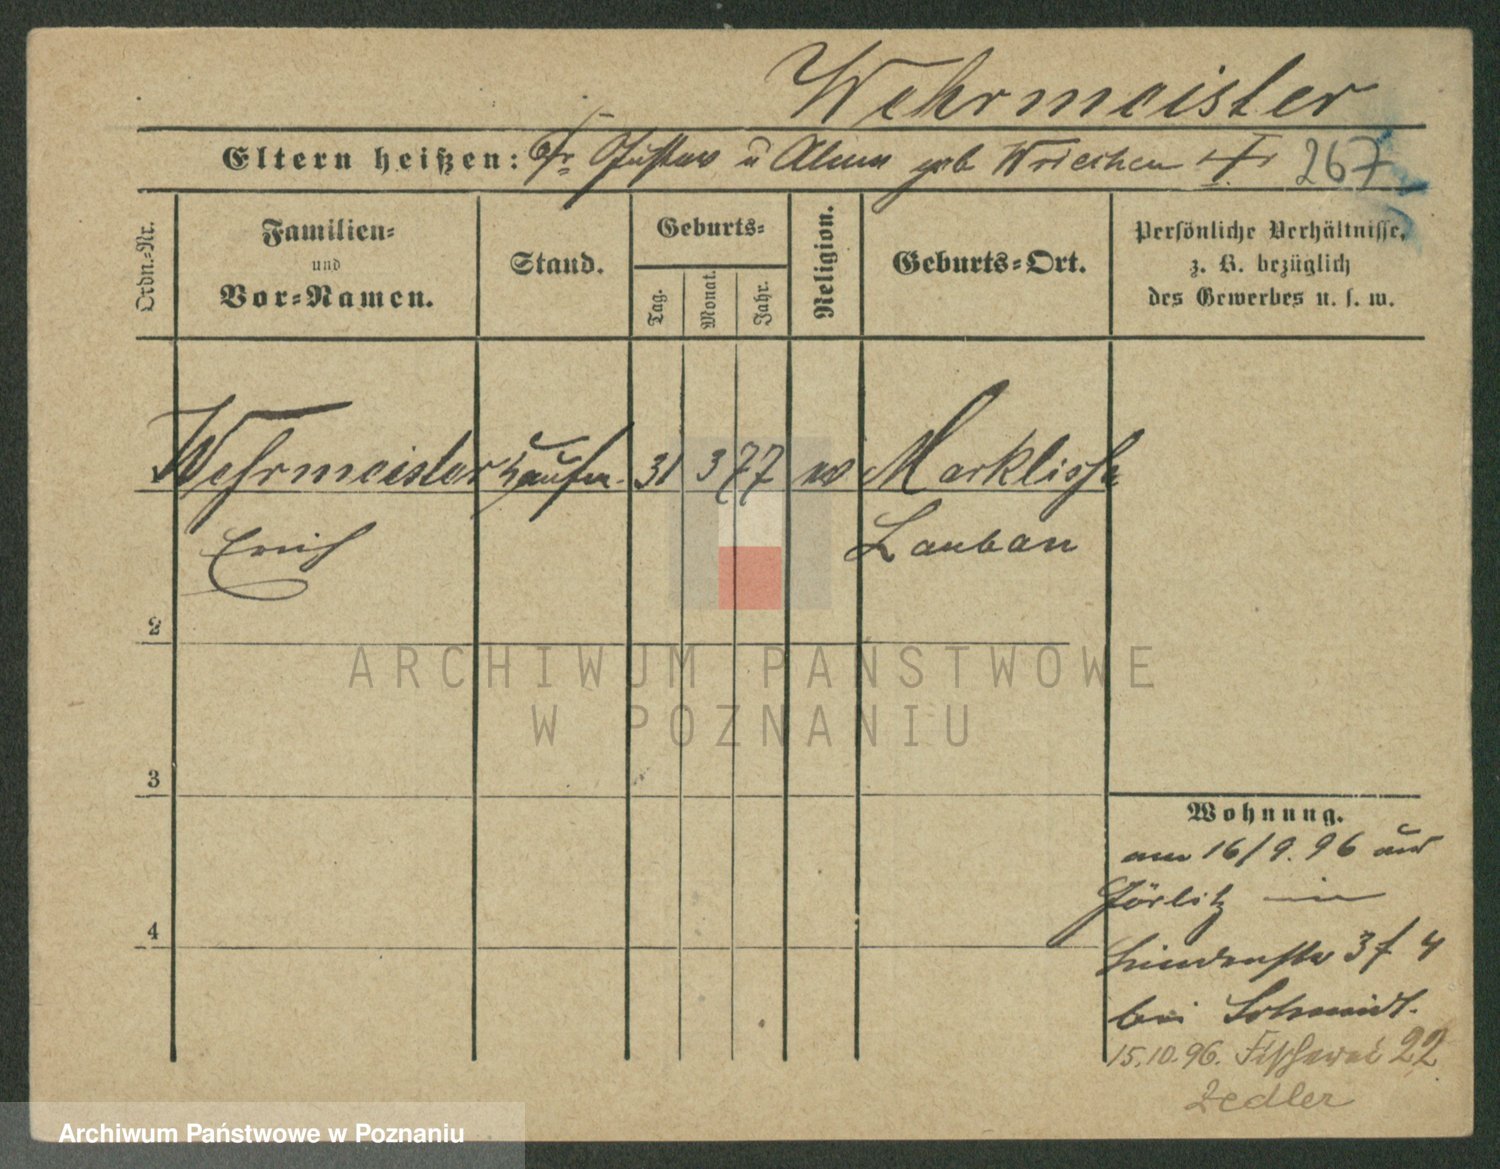 Wehrmeister
Eltern heißen: Gustav u geb Wrieshen 267
Ordn.-Nr.
Familien-
und
Vor-Namen.
Stand.
Geburts-
Tag.
Monat.
Jahr.
Religion.
Geburts-Ort.
Persönliche Verhältnisse,
z. B. bezüglich
des Gewerbes u. s. w.
Wehrmeister Kaufm. 31 3 77 Marklissa
Erich Lauban
2
3
4
Wohnung.
am 16/9. 96 aus
Görlitz in
Lindenstr 3 4
bei Schmidt.
15.10.96. Fischerei 22
Zedler
ARCHIWUM PAŃSTWOWE
W POZNANIU
Archiwum Państwowe w Poznaniu